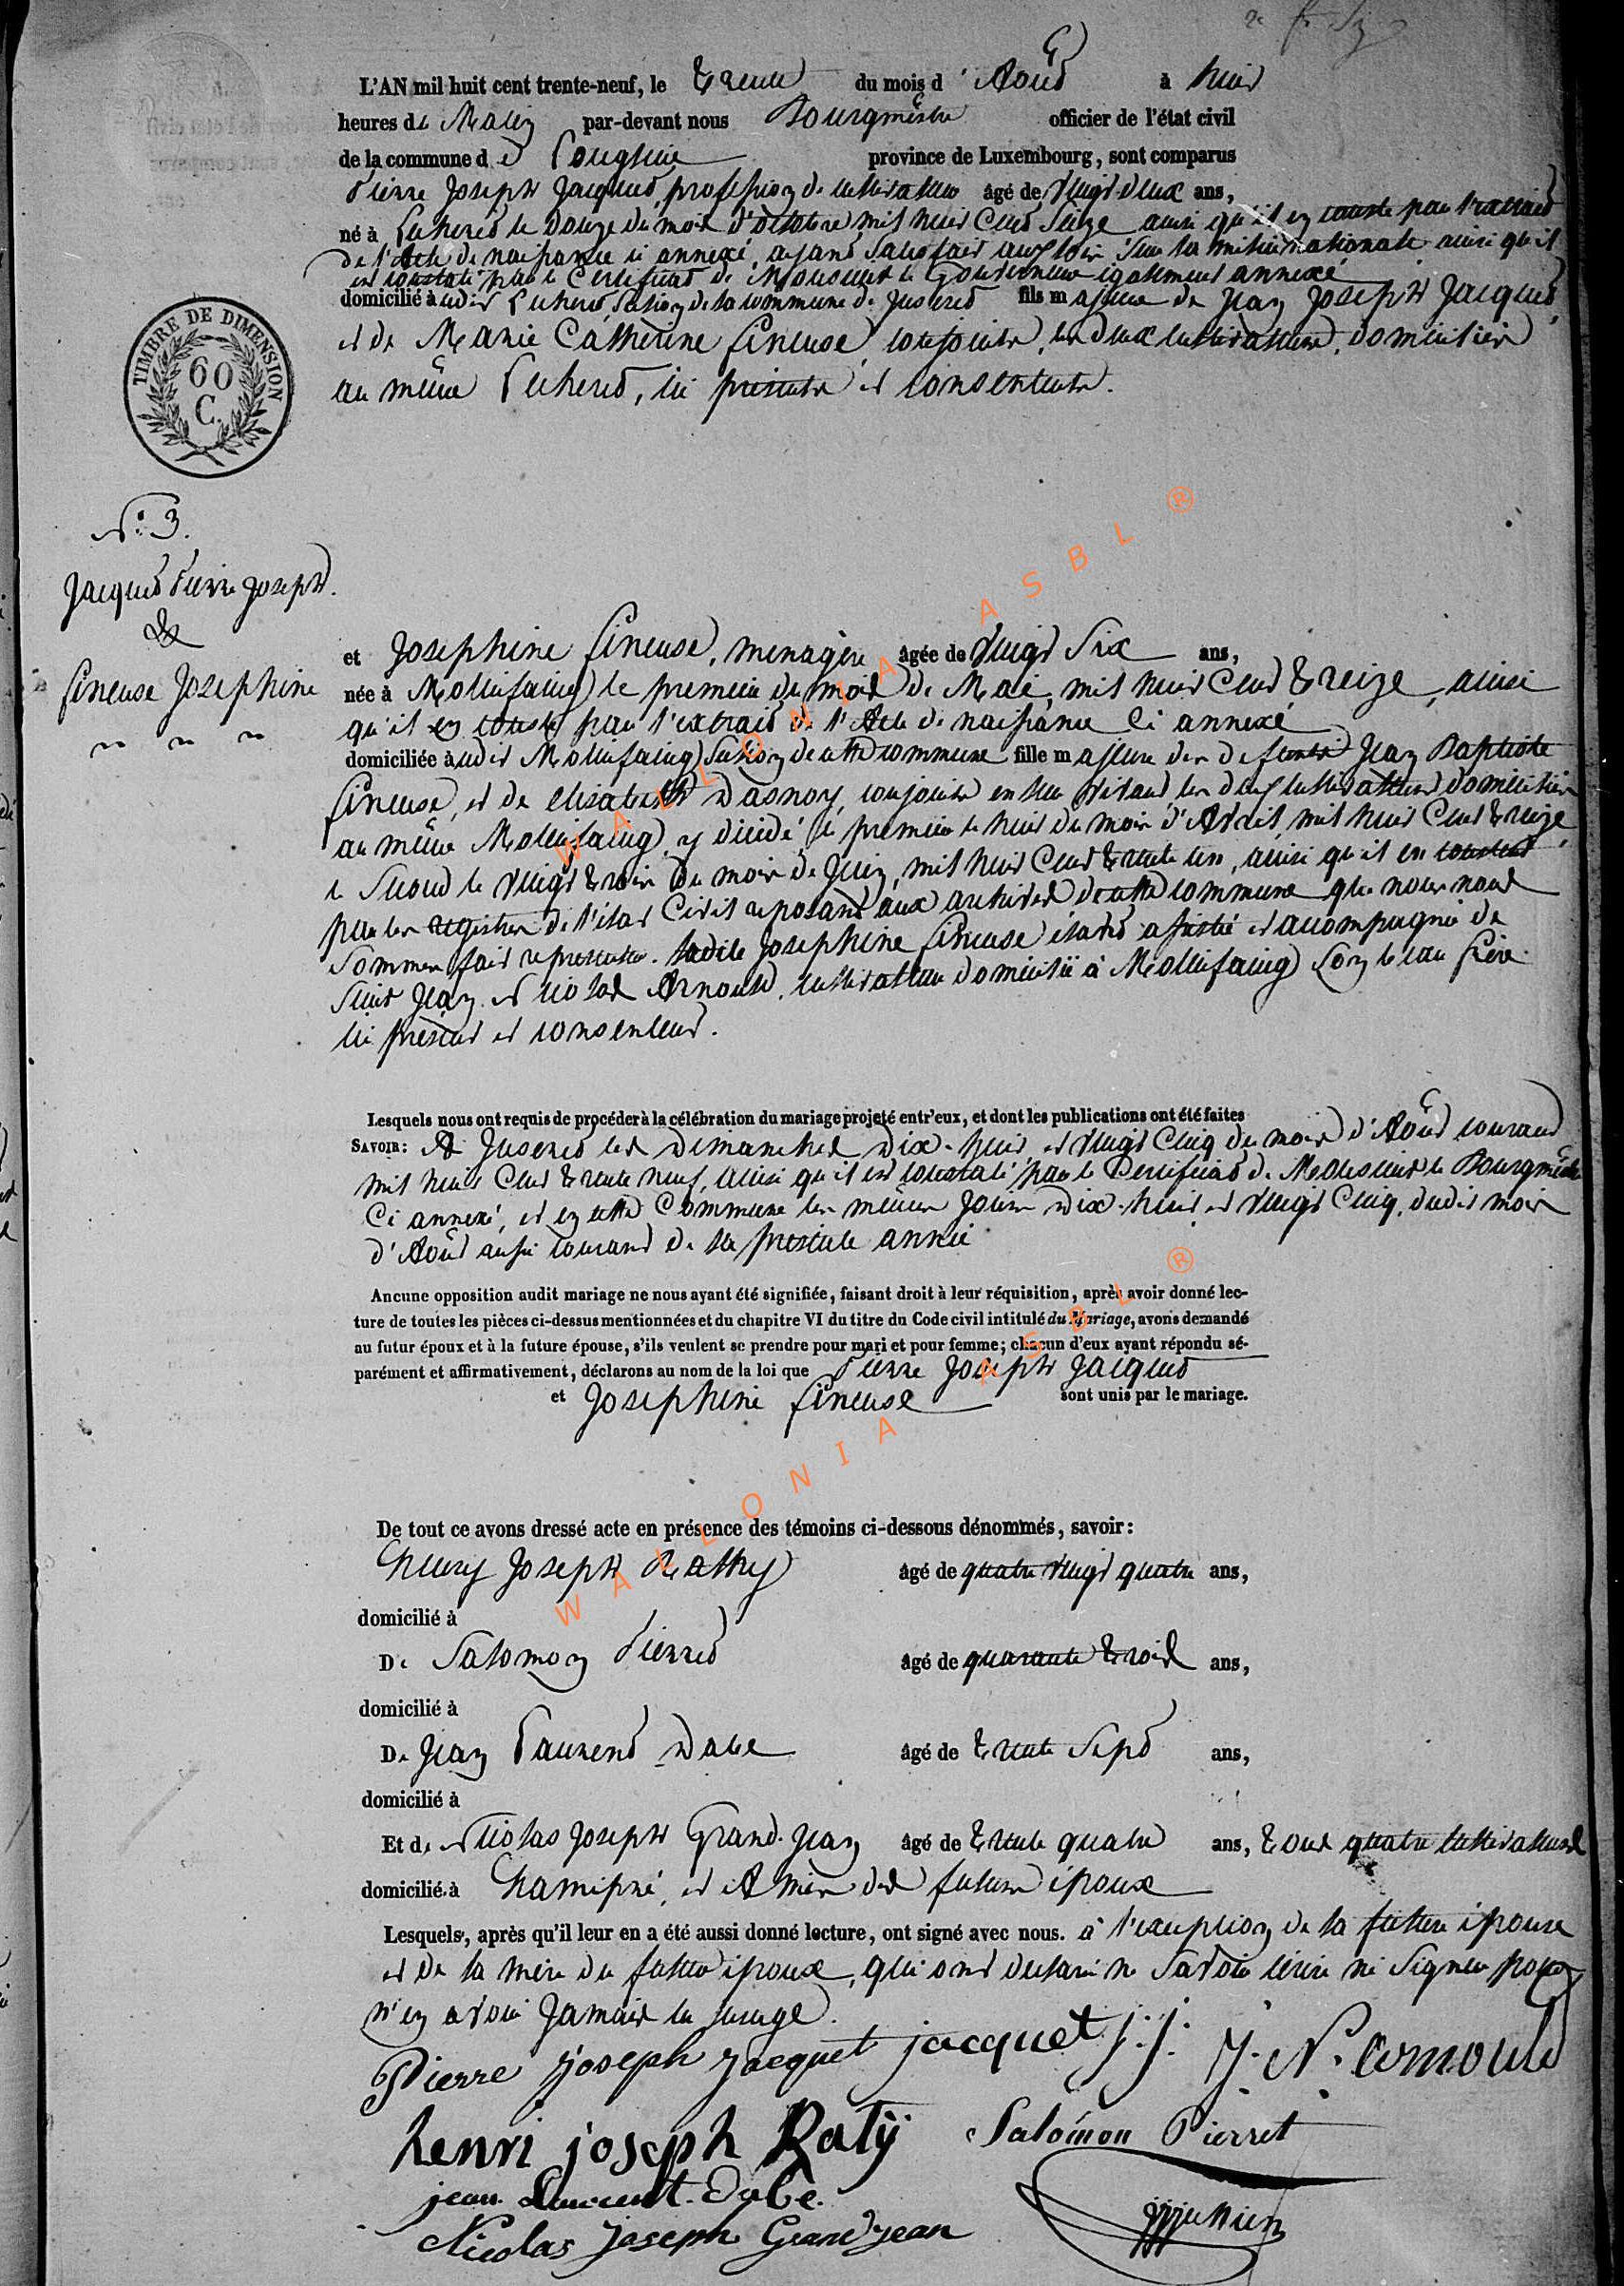 L'AN mil huit cent trente-neuf, le Trente du mois d'Août à huit
heures de Matin par-devant nous Bourgmestre officier de l'état civil
de la commune de province de Luxembourg, sont comparus
Pierre Joseph Jacquet, profession de cultivateur âgé de vingt deux ans,
né à Lescheret le Douze du mois d'octobre mil huit Cent Seize ainsi qu'il en conste par l'extrait
de l'Acte de naissance ci annexé, ayant satisfait aux lois sur la milice nationale ainsi qu'il
est constaté par le Certificat de Monsieur le Gouverneur également annexé
domicilié audit Lescheret section de la commune de Juseret fils majeur de Jean Joseph Jacquet,
et de Marie Catherine Fineuse conjoints, les deux cultivateurs, domiciliés
au même Lescheret, ici présents et consentents.
TIMBRE DE DIMENSION
60
C.
N° 3.
Jacquet Pierre Joseph.
&
Fineuse Josephine
et Josephine Fineuse, menagère âgée de vingt Six ans,
née à Mollinfaing le premier du mois de Mai, mil huit Cent Treize, ainsi
qu'il en conste par l'extrait de l'Acte de naissance ci annexé
domiciliée audit Mollinfaing section de cette commune fille majeure des defunts Jean Baptiste
Fineuse, et de Elisabeth Dasnoy, conjoints en leur vivant, les deux cultivateurs domiciliés
au même Mollinfaing y décédé, le premier le huit du mois d'Avril mil huit Cent Treize
le Second le vingt trois du mois de Juin, mil huit Cent Trente un, ainsi qu'il en
par les registres de l'état Civil reposant aux archives de cette commune que nous nous
sommes fait representer. Ladite Josephine Fineuse étant assistée et accompagnée de
Sieur Jean Nicolas Arnould, cultivateur domicilié à Mollinfaing son beau frère
ici présent et consenteur.
Lesquels nous ont requis de procéder à la célébration du mariage projeté entr'eux, et dont les publications ont été faites
SAVOIR: A Juseret les Dimanches Dix-huit et vingt Cinq du mois d'Août courant
mil huit Cent Trente neuf, ainsi qu'il est constaté par le Certificat de Monsieur le Bourgmestre
Ci annexé, et en cette Commune les mêmes jours Dix-huit et vingt Cinq, dudit mois
d'Août aussi courant de la presente année
Ancune opposition audit mariage ne nous ayant été signifiée, faisant droit à leur réquisition, après avoir donné lec-
ture de toutes les pièces ci-dessus mentionnées et du chapitre VI du titre du Code civil intitulé du Mariage, avons demandé
au futur époux et à la future épouse, s'ils veulent se prendre pour mari et pour femme; chacun d'eux ayant répondu sé-
parément et affirmativement, déclarons au nom de la loi que Pierre Joseph Jacquet
et Josephine Fineuse sont unis par le mariage.
De tout ce avons dressé acte en présence des témoins ci-dessous dénommés, savoir:
Henry Joseph Rathy âgé de quatre vingt quatre ans,
domicilié à
De Salomon Pierret âgé de quarante trois ans,
domicilié à
De Jean Laurent Dabe âgé de Trente Sept ans,
domicilié à
Et de Nicolas Joseph Grand-Jean âgé de Trente quatre ans, Tous quatre cultivateurs
domicilié à et Amis des futurs époux
Lesquels, après qu'il leur en a été aussi donné lecture, ont signé avec nous. à l'exception de la future épouse
et de la mère du futur époux, qui ont declaré ne savoir écrire ni signer pour
n'en avoir Jamais eu usage.
Pierre Joseph Jacquet jacquet j:j: J. N. arnould
henri joseph Ratÿ Salomon Pierret
jean Laurent Dabe
Nicolas Joseph Grandjean
WALLONIA ASBL ®
WALLONIA ASBL ®